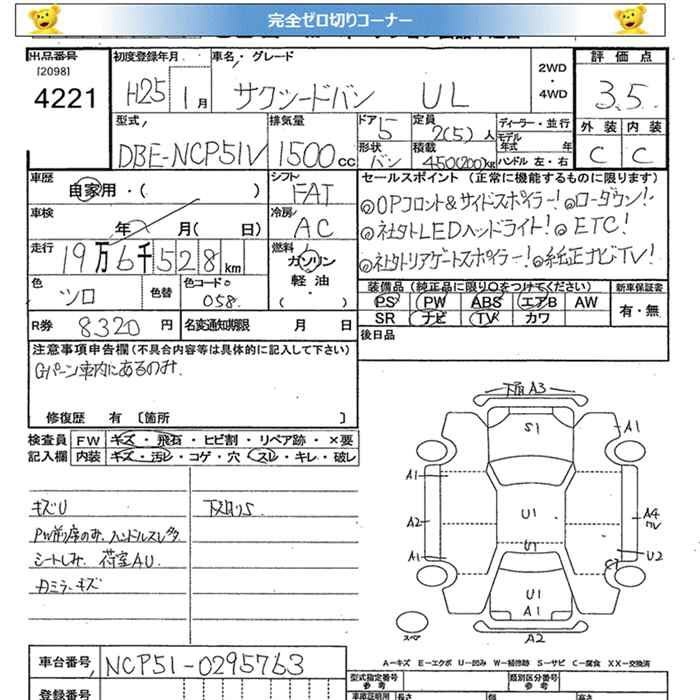 完全ゼロ切りコーナー
出品番号 初度登録年月 車名・グレード 2WD・4WD 評価点
[2098]
4221 H25年 1月 サクシードバン UL 3.5
外装 内装
C C
型式 排気量 ドア 定員 ディーラー・並行
DBE-NCP51V 1500cc 5 2(5)人 モデル年式 年
形状 積載 ハンドル 左・右
バン 450(200)kg
車歴 シフト セールスポイント(正常に機能するものに限ります)
自家用・( ) FAT ◎OPフロント&サイドスポイラー! ◎ローダウン!
車検 冷房 ◎社外LEDヘッドライト! ◎ETC!
年 月( 日) AC ◎社外リアゲートスポイラー! ◎純正ナビTV!
走行 燃料
19万6千528km ガソリン
軽油
・( )
色 色替 色コードNo
シロ 058
装備品(純正品に限り○をつけてください) 新車保証書
PS PW ABS エアB AW 有・無
SR ナビ TV カワ
R券 8320円 名変通知期限 月 日
後日品
注意事項申告欄(不具合内容等は具体的に記入して下さい)
Gパーン車内にあるのみ
修復歴 有 [箇所 ]
検査員 FW キズ・飛石・ヒビ割・リペア跡・×要
記入欄 内装 キズ・汚レ・コゲ・穴・スレ・キレ・破レ
キズU 下スリキズ
PW前席のみ ハンドルスレ多
シートしみ 荷室AU
カミラーキズ
下角A3
S1
A1
A1
A2 U1 A4
U1
A1 U2
U1
A1
スペア A2
A-キズ E-エクボ U-凹み W-補修跡 S-サビ C-腐食 XX-交換済
車台番号 NCP51-0295763
型式指定番号 類別区分番号
参考 参考
登録番号 車庫証明用 長さ 幅 高さ